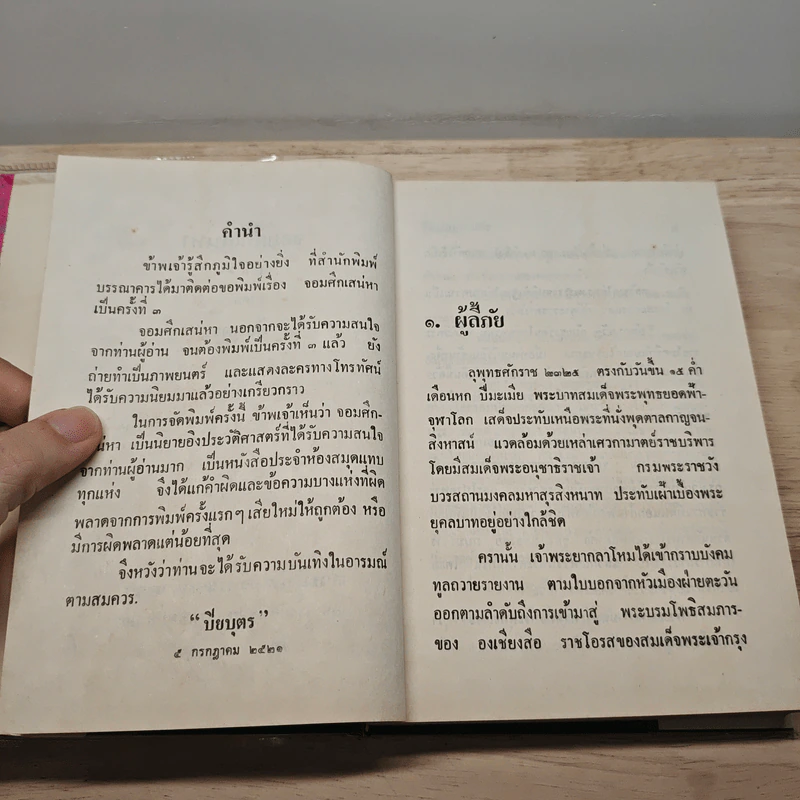 คำนำ
ข้าพเจ้ารู้สึกภูมิใจอย่างยิ่ง ที่สำนักพิมพ์
บรรณาคารได้มาติดต่อขอพิมพ์เรื่อง จอมศึกเสน่หา
เป็นครั้งที่ ๓
จอมศึกเสน่หา นอกจากจะได้รับความสนใจ
จากท่านผู้อ่าน จนต้องพิมพ์เป็นครั้งที่ ๓ แล้ว ยัง
ถ่ายทำเป็นภาพยนตร์ และแสดงละครทางโทรทัศน์
ได้รับความนิยมมาแล้วอย่างเกรียวกราว
ในการจัดพิมพ์ครั้งนี้ ข้าพเจ้าเห็นว่า จอมศึก-
น่หา เป็นนิยายอิงประวัติศาสตร์ที่ได้รับความสนใจ
จากท่านผู้อ่านมาก เป็นหนังสือประจำห้องสมุดแทบ
ทุกแห่ง จึงได้แก้คำผิดและข้อความบางแห่งที่ผิด
พลาดจากการพิมพ์ครั้งแรกๆ เสียใหม่ให้ถูกต้อง หรือ
มีการผิดพลาดแต่น้อยที่สุด
จึงหวังว่าท่านจะได้รับความบันเทิงในอารมณ์
ตามสมควร.
“ปิยบุตร”
๕ กรกฎาคม ๒๕๒๑
๑. ผู้ลี้ภัย
ลุพุทธศักราช ๒๓๒๕ ตรงกับวันขึ้น ๑๕ ค่ำ
เดือนหก ปีมะเมีย พระบาทสมเด็จพระพุทธยอดฟ้า-
จุฬาโลก เสด็จประทับเหนือพระที่นั่งพุดตาลกาญจน-
สิงหาสน์ แวดล้อมด้วยเหล่าเสวกามาตย์ราชบริพาร
โดยมีสมเด็จพระอนุชาธิราชเจ้า กรมพระราชวัง
บวรสถานมงคลมหาสุรสิงหนาท ประทับเฝ้าเบื้องพระ
ยุคลบาทอยู่อย่างใกล้ชิด
ครานั้น เจ้าพระยากลาโหมได้เข้ากราบบังคม
ทูลถวายรายงาน ตามใบบอกจากหัวเมืองฝ่ายตะวัน
ออกตามลำดับถึงการเข้ามาสู่ พระบรมโพธิสมภาร-
ของ องเชียงสือ ราชโอรสของสมเด็จพระเจ้ากรุง